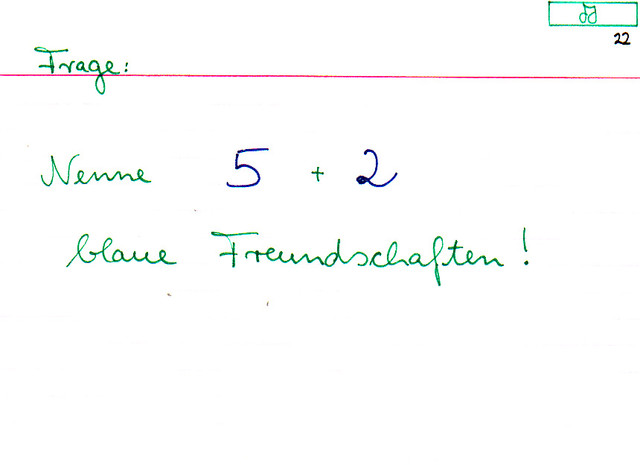 22
Frage:
Nenne 5 + 2
blaue Freundschaften!